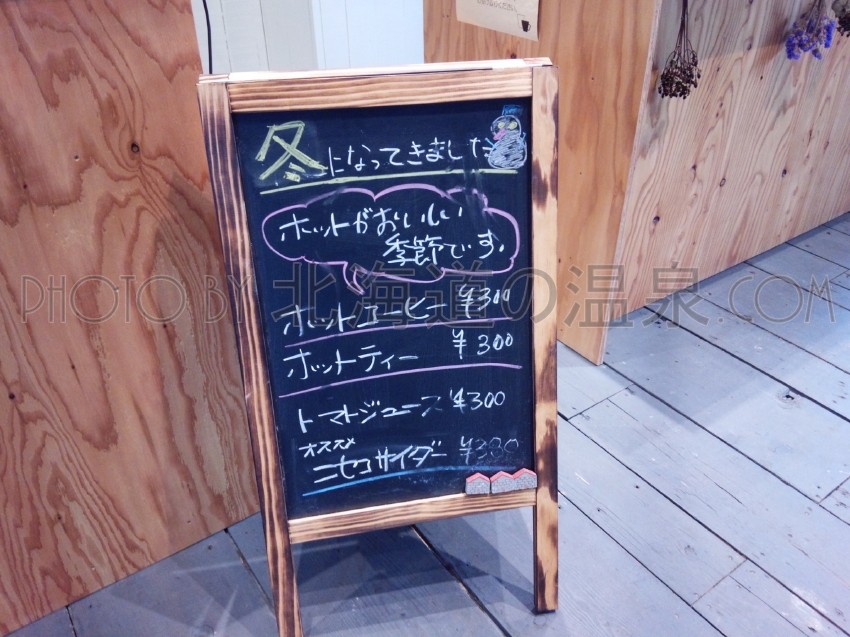 冬になってきました
ホットがおいしい
季節です。
ホットコーヒー ¥300
ホットティー ¥300
トマトジュース ¥300
オススメ
ニセコサイダー
PHOTO BY 北海道の温泉.COM